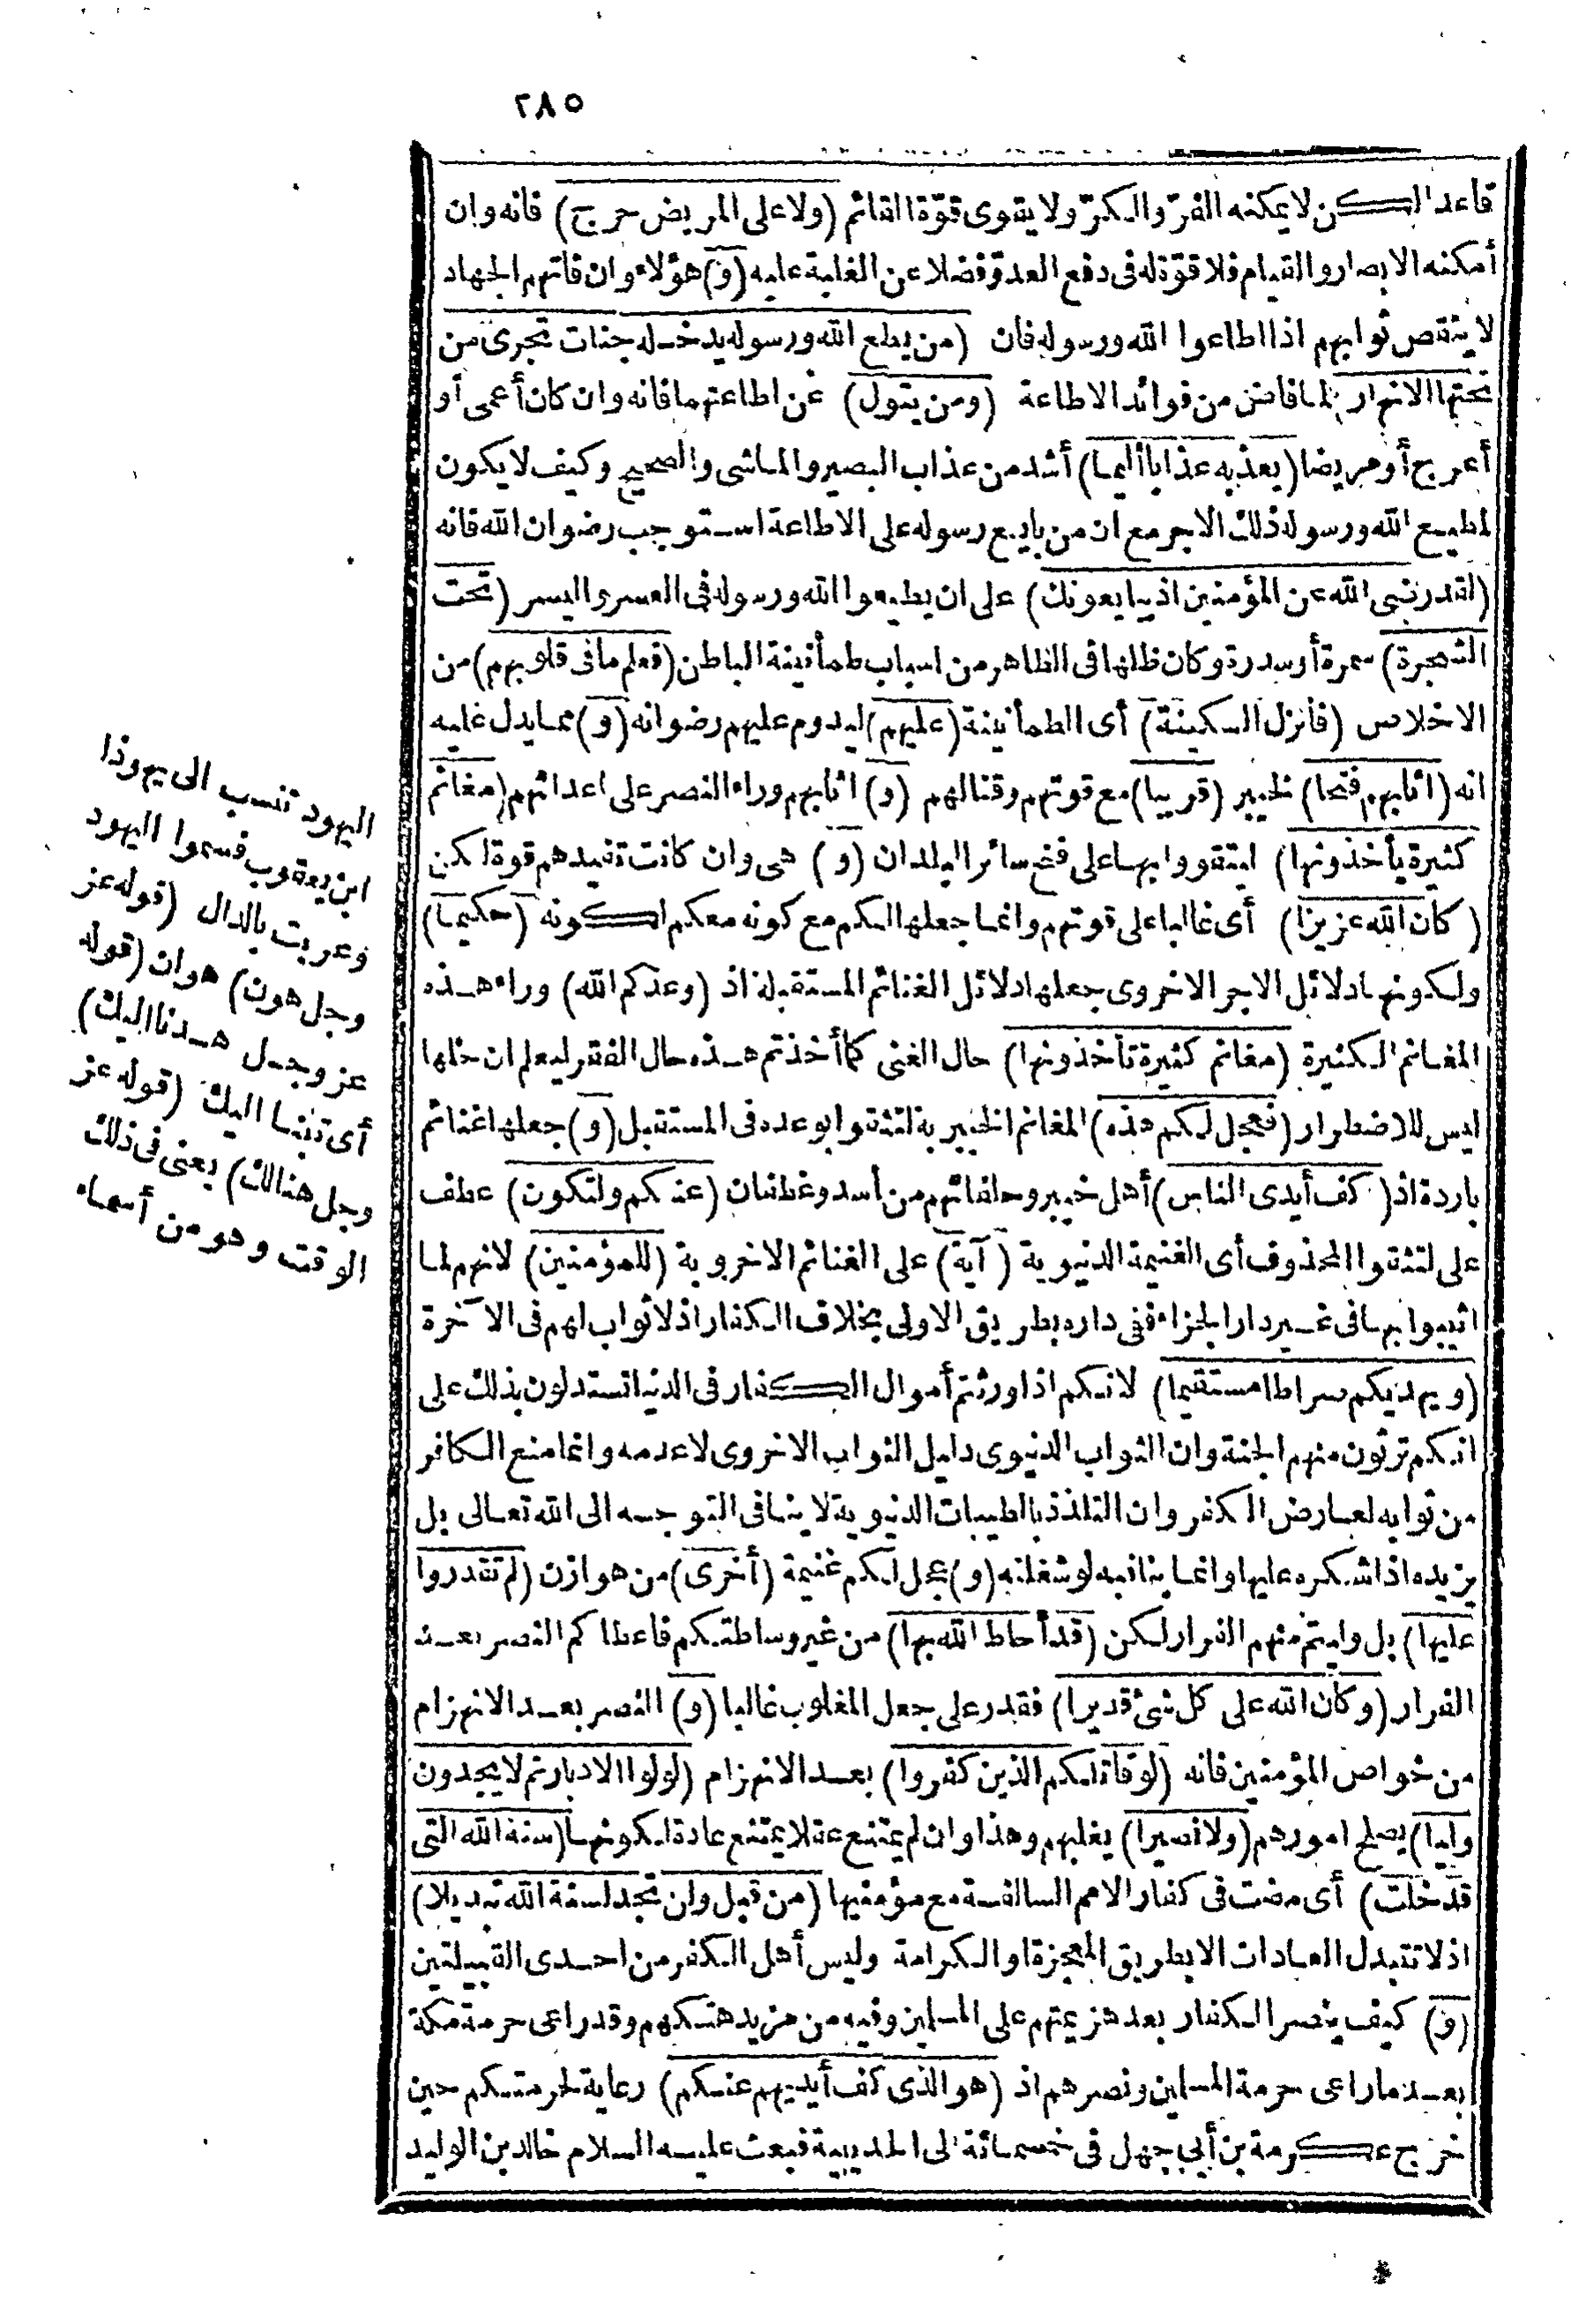 ٢٨٥
قاعد لكن لا يمكنه الفرّ والكرّ ولا يقوى قوّة القائم (ولا على المريض حرج) فانه وان
أمكنه الابصار والقيام فلا قوّة له فى دفع العدوّ فضلا عن الغلبة عليه (و) هؤلاء وان فاتهم الجهاد
لا ينقص ثوابهم اذا اطاعوا الله ورسوله فان (من يطع الله ورسوله يدخله جنات تجرى من
تحتها الانهار) لما فاض من فوائد الاطاعة (ومن يتول) عن اطاعتهما فانه وان كان أعمى أو
أعرج أو مريضا (يعذبه عذابا أليما) أشد من عذاب البصير والماشى والصحيح وكيف لا يكون
لمطيع الله ورسوله ذلك الاجر مع ان من بايع رسوله على الاطاعة استوجب رضوان الله فانه
(لقد رضى الله عن المؤمنين اذ يبايعونك) على ان يطيعوا الله ورسوله فى العسر واليسر (تحت
الشجرة) سمرة أو سدرة وكان ظلها فى الظاهر من اسباب طمأنينة الباطن (فعلم ما فى قلوبهم) من
الاخلاص (فأنزل السكينة) أى الطمأنينة (عليهم) ليدوم عليهم رضوانه (و) مما يدل عليه
انه (اثابهم فتحا) لخيبر (قريبا) مع قوتهم وقتالهم (و) اثابهم وراء النصر على اعدائهم (مغانم
كثيرة يأخذونها) ليتقووا بها على فتح سائر البلدان (و) هى وان كانت تفيدهم قوة لكن
(كان الله عزيزا) أى غالبا على قوتهم وانما جعلها لكم مع كونه معكم لكونه (حكيما)
ولكونها دلائل الاجر الاخروى جعلها دلائل الغنائم المستقبلة اذ (وعدكم الله) وراء هذه
المغانم الكثيرة (مغانم كثيرة تأخذونها) حال الغنى كما أخذتم هذه حال الفقر ليعلم ان حلها
ليس للاضطرار (فعجل لكم هذه) المغانم الخيبرية لتثقوا بوعده فى المستقبل (و) جعلها غنائم
باردة اذ (كف أيدى الناس) أهل خيبر وحلفائهم من أسد وغطفان (عنكم ولتكون) عطف
على لتثقوا المحذوف أى الغنيمة الدنيوية (آية) على الغنائم الاخروية (للمؤمنين) لانهم لما
اثيبوا بها فى غير دار الجزاء ففى داره بطريق الاولى بخلاف الكفار اذ لا ثواب لهم فى الآخرة
(ويهديكم صراطا مستقيما) لانكم اذا ورثتم أموال الكفار فى الدنيا تستدلون بذلك على
انكم ترثون منهم الجنة وان الثواب الدنيوى دليل الثواب الاخروى لا عدمه وانما منع الكافر
من ثوابه لعارض الكفر وان التلذذ بالطيبات الدنيوية لا ينافى التوجه الى الله تعالى بل
يزيده اذا شكره عليها وانما ينافيه لو شغلنه (و) عجل لكم غنيمة (أخرى) من هوازن (لم تقدروا
عليها) بل وليتم منهم الفرار لكن (قد أحاط الله بها) من غير وساطتكم فاعطاكم النصر بعد
الفرار (وكان الله على كل شئ قديرا) فقدر على جعل المغلوب غالبا (و) النصر بعد الانهزام
من خواص المؤمنين فانه (لو قاتلكم الذين كفروا) بعد الانهزام (لولوا الادبار ثم لا يجدون
وليا) يصلح امورهم (ولا نصيرا) يغلبهم وهذا وان لم يمتنع عقلا يمتنع عادة لكونها (سنة الله التى
قد خلت) أى مضت فى كفار الامم السالفة مع مؤمنيها (من قبل ولن تجد لسنة الله تبديلا)
اذ لا تتبدل العادات الا بطريق المعجزة او الكرامة وليس أهل الكفر من احدى القبيلتين
(و) كيف ينصر الكفار بعد هزيمتهم على المسلمين وفيه من مزيد هتكهم وقد راعى حرمة مكة
بعد ما راعى حرمة المسلمين ونصرهم اذ (هو الذى كف أيديهم عنكم) رعاية لحرمتكم حين
خرج عكرمة بن أبى جهل فى خمسمائة الى الحديبية فبعث عليه السلام خالد بن الوليد
اليهود تنسب الى يهوذا
ابن يعقوب فسموا اليهود
وعربت بالدال (قوله عز
وجل هون) هوان (قوله
عز وجل هدنا اليك)
أى تبنا اليك (قوله عز
وجل هنالك) يعنى فى ذلك
الوقت وهو من أسماء